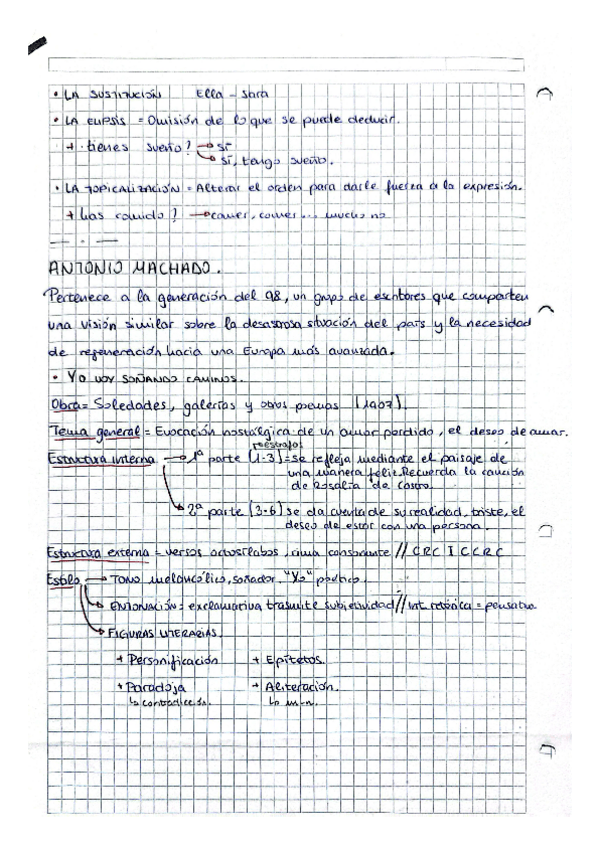 • LA SUSTITUCIÓN Ella - Sara
• LA ELIPSIS = Omisión de lo que se puede deducir.
+ tienes sueño? → sí
→ sí, tengo sueño.
• LA TOPICALIZACIÓN = Alterar el orden para darle fuerza a la expresión.
+ has comido? → comer, comer... mucho no
— . —
ANTONIO MACHADO.
Pertenece a la generación del 98, un grupo de escritores que comparten
una visión similar sobre la desastrosa situación del país y la necesidad
de regeneración hacia una Europa más avanzada.
• YO VOY SOÑANDO CAMINOS.
Obra = Soledades, galerías y otros poemas (1907).
Tema general = Evocación nostálgica de un amor perdido, el deseo de amar.
Estructura interna → 1ª parte (1-3) = se refleja mediante el paisaje de
estrofas
una manera feliz. Recuerda la canción
de Rosalía de Castro.
→ 2ª parte (3-6) se da cuenta de su realidad, triste, el
deseo de estar con una persona.
Estructura externa = versos octosílabos, rima consonante // CRC I CCRC
Estilo → TONO melancólico, soñador. "Yo" poético.
→ ENTONACIÓN: exclamativa trasmite subjetividad // int. retórica = pensativa
→ FIGURAS LITERARIAS.
+ Personificación + Epítetos.
+ Paradoja + Aliteración.
↳ contradicción. ↳ m-n.